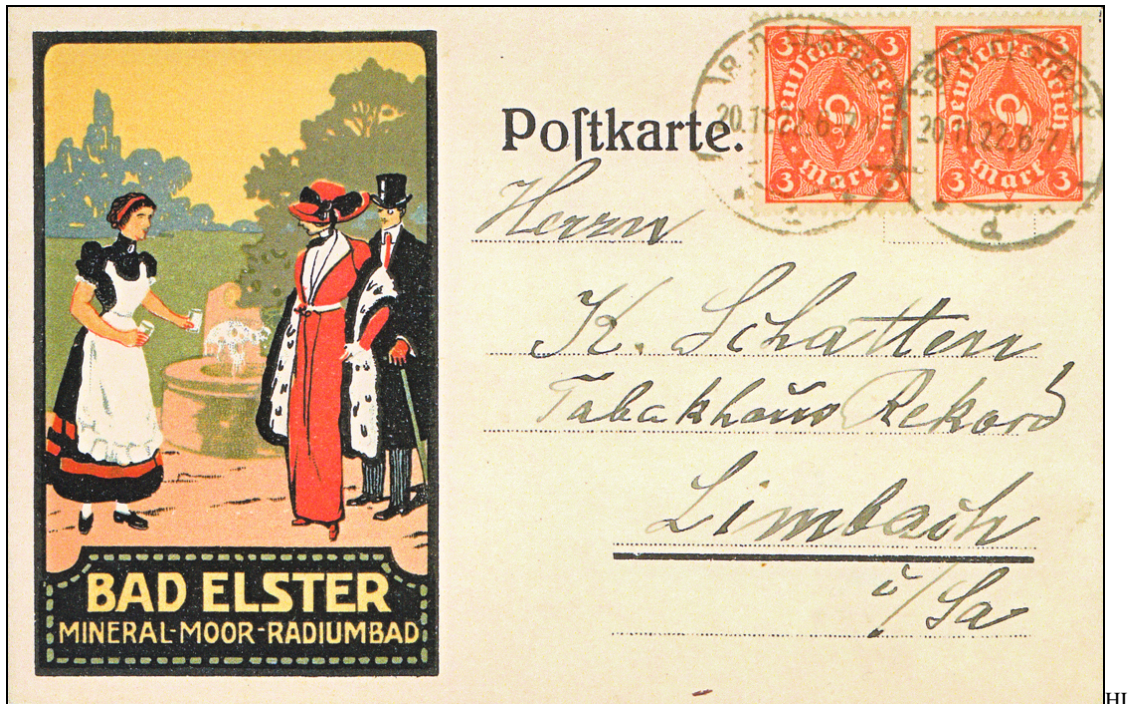 BAD ELSTER
MINERAL-MOOR-RADIUMBAD
Poſtkarte.
3 3
Deutsches Reich
Mark
3 3
3 3
Deutsches Reich
Mark
3 3
BAD ELSTER
20.11.22.6-7V
20.11.22.6-7V
d
Herrn
K. Schatten
Tabakhaus Rekord
Limbach
i/Sa
HI